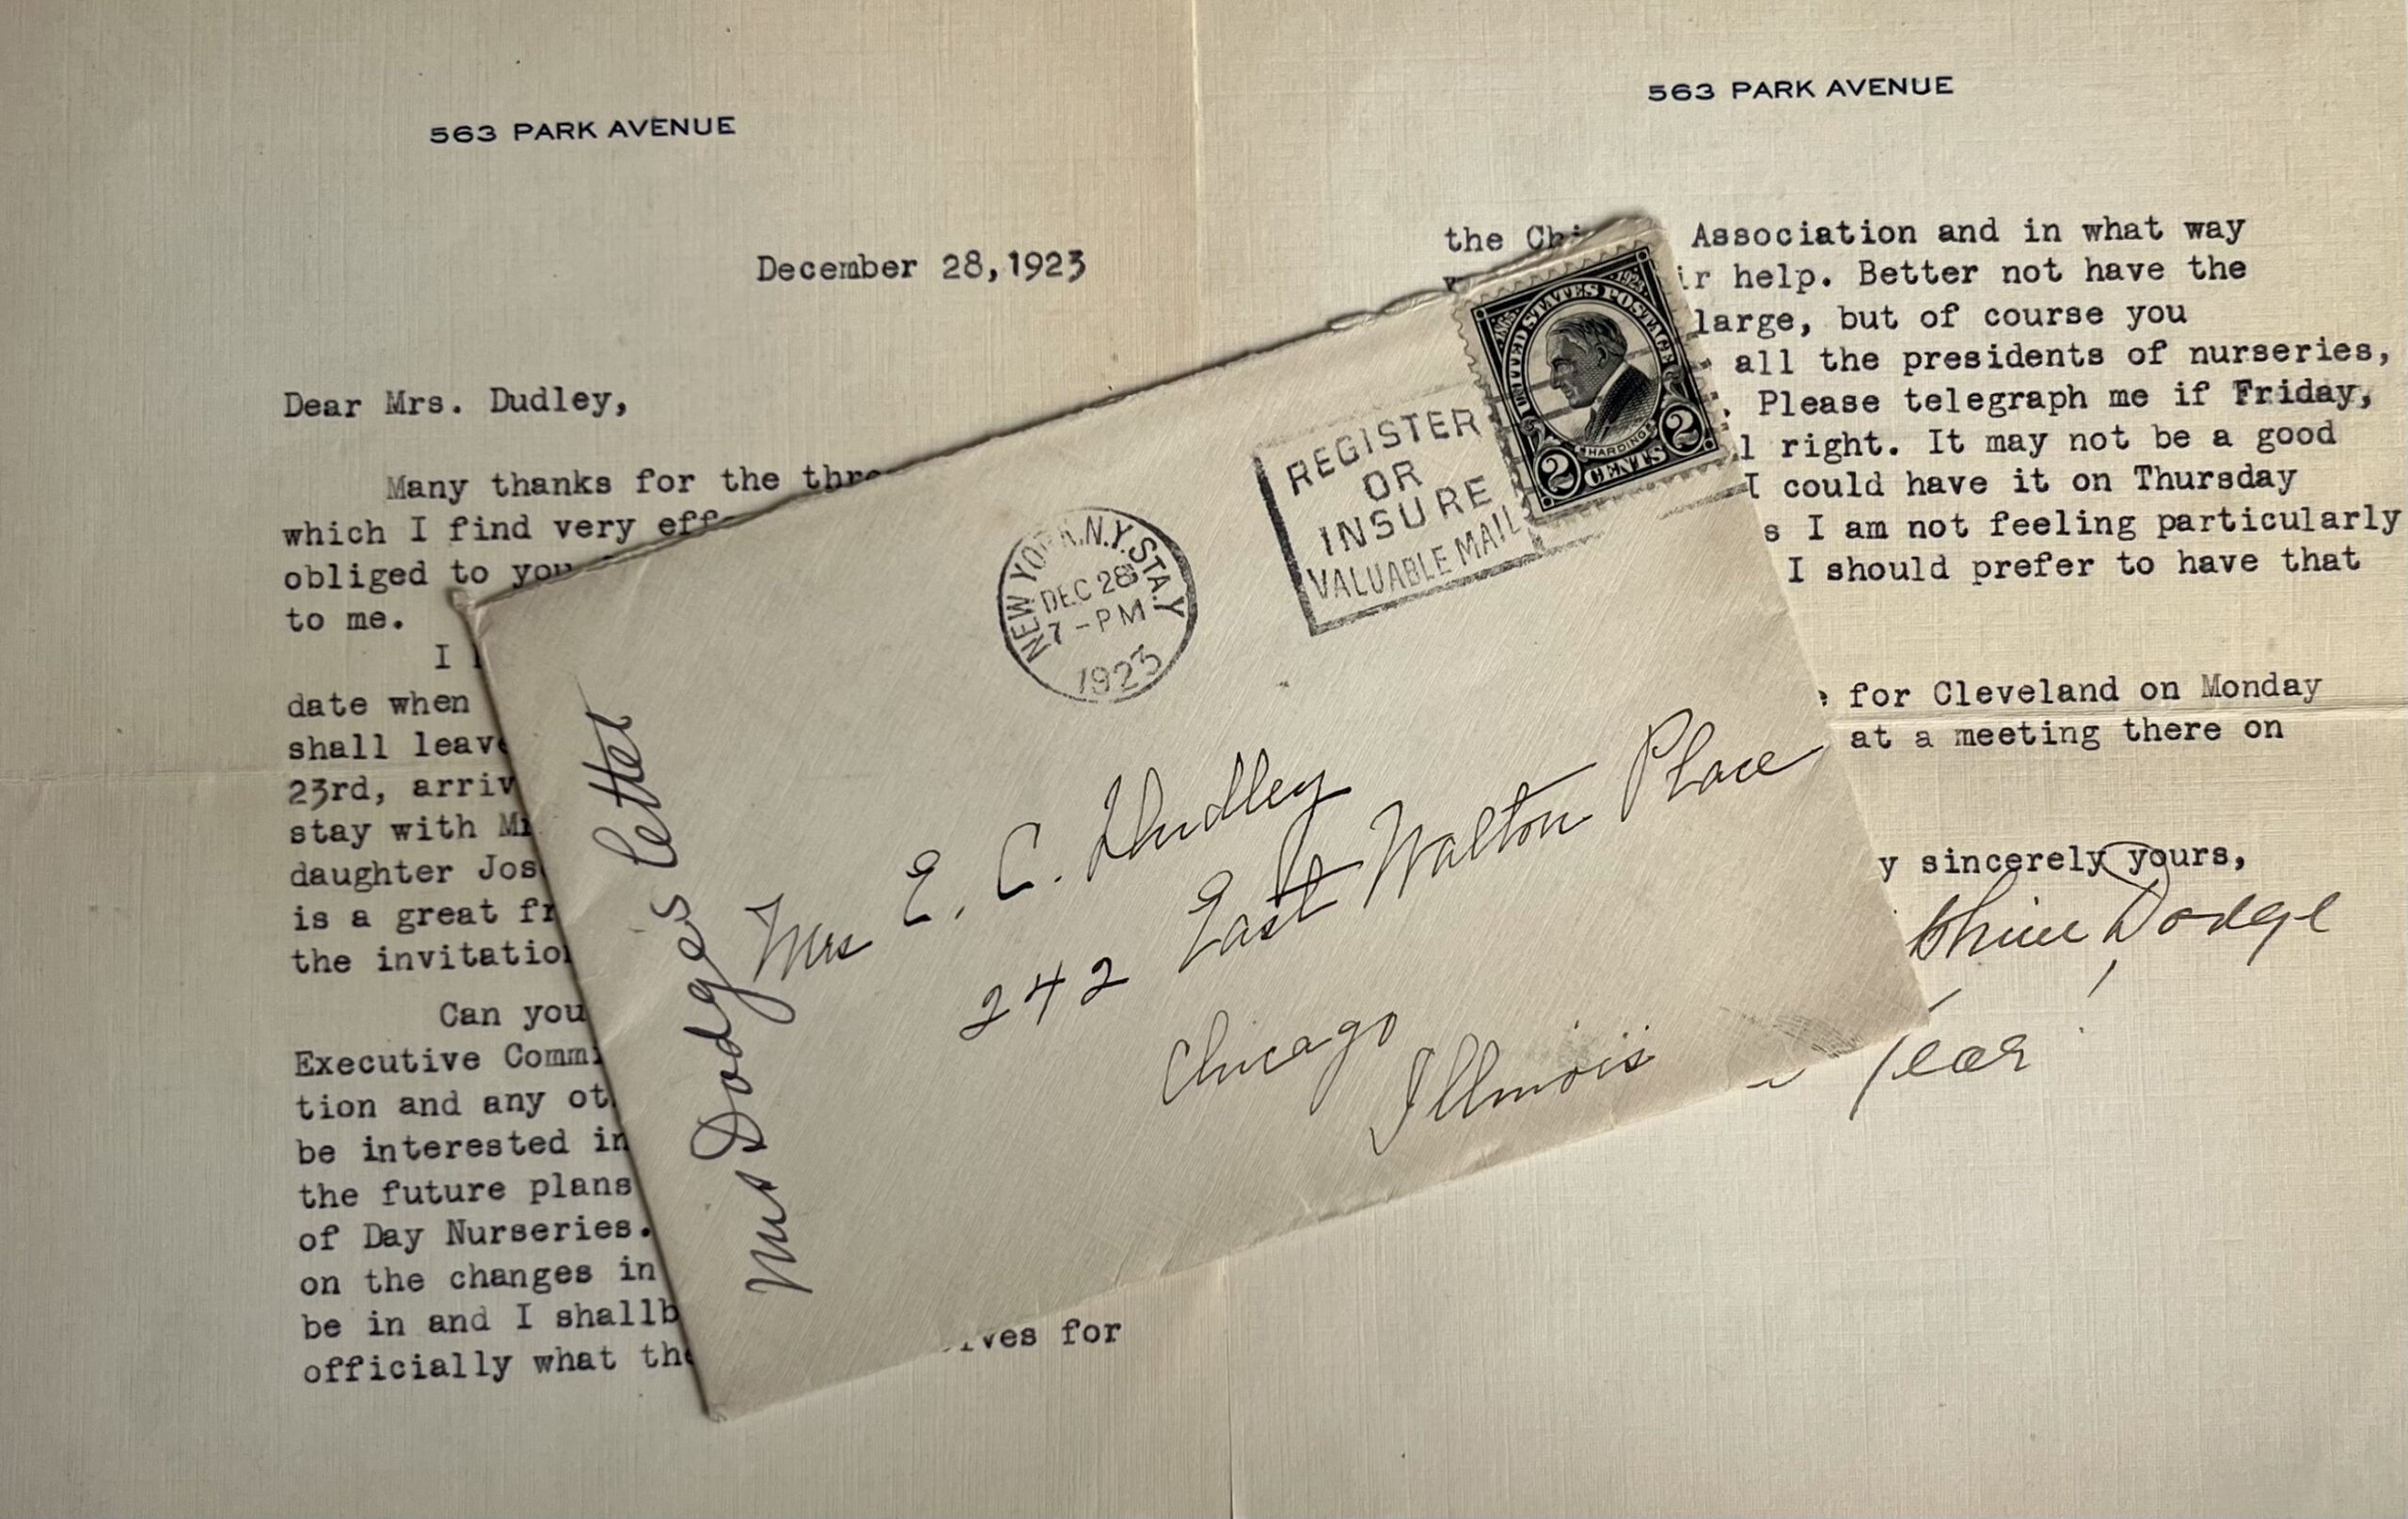 563 PARK AVENUE
December 28, 1923
Dear Mrs. Dudley,
Many thanks for the
which I find very
obliged to you
to me.
I
date when
shall leave
23rd, arriv
stay with
daughter Jos
is a great
the invitation
Can you
Executive Commi
tion and any ot
be interested in
the future plans
of Day Nurseries.
on the changes in
be in and I shallb
officially what the
ves for
563 PARK AVENUE
the Association and in what way
help. Better not have the
large, but of course you
all the presidents of nurseries,
Please telegraph me if Friday,
right. It may not be a good
I could have it on Thursday
s I am not feeling particularly
I should prefer to have that
for Cleveland on Monday
at a meeting there on
y sincerely yours,
phine Dodge
Year
NEW YORK, N.Y. STA. Y
DEC 28
7-PM
1923
REGISTER
OR
INSURE
VALUABLE MAIL
UNITED STATES POSTAGE
1865
1923
HARDING
2 CENTS 2
Mrs Dodge's letter
Mrs E. C. Dudley
242 East Walton Place
Chicago
Illinois